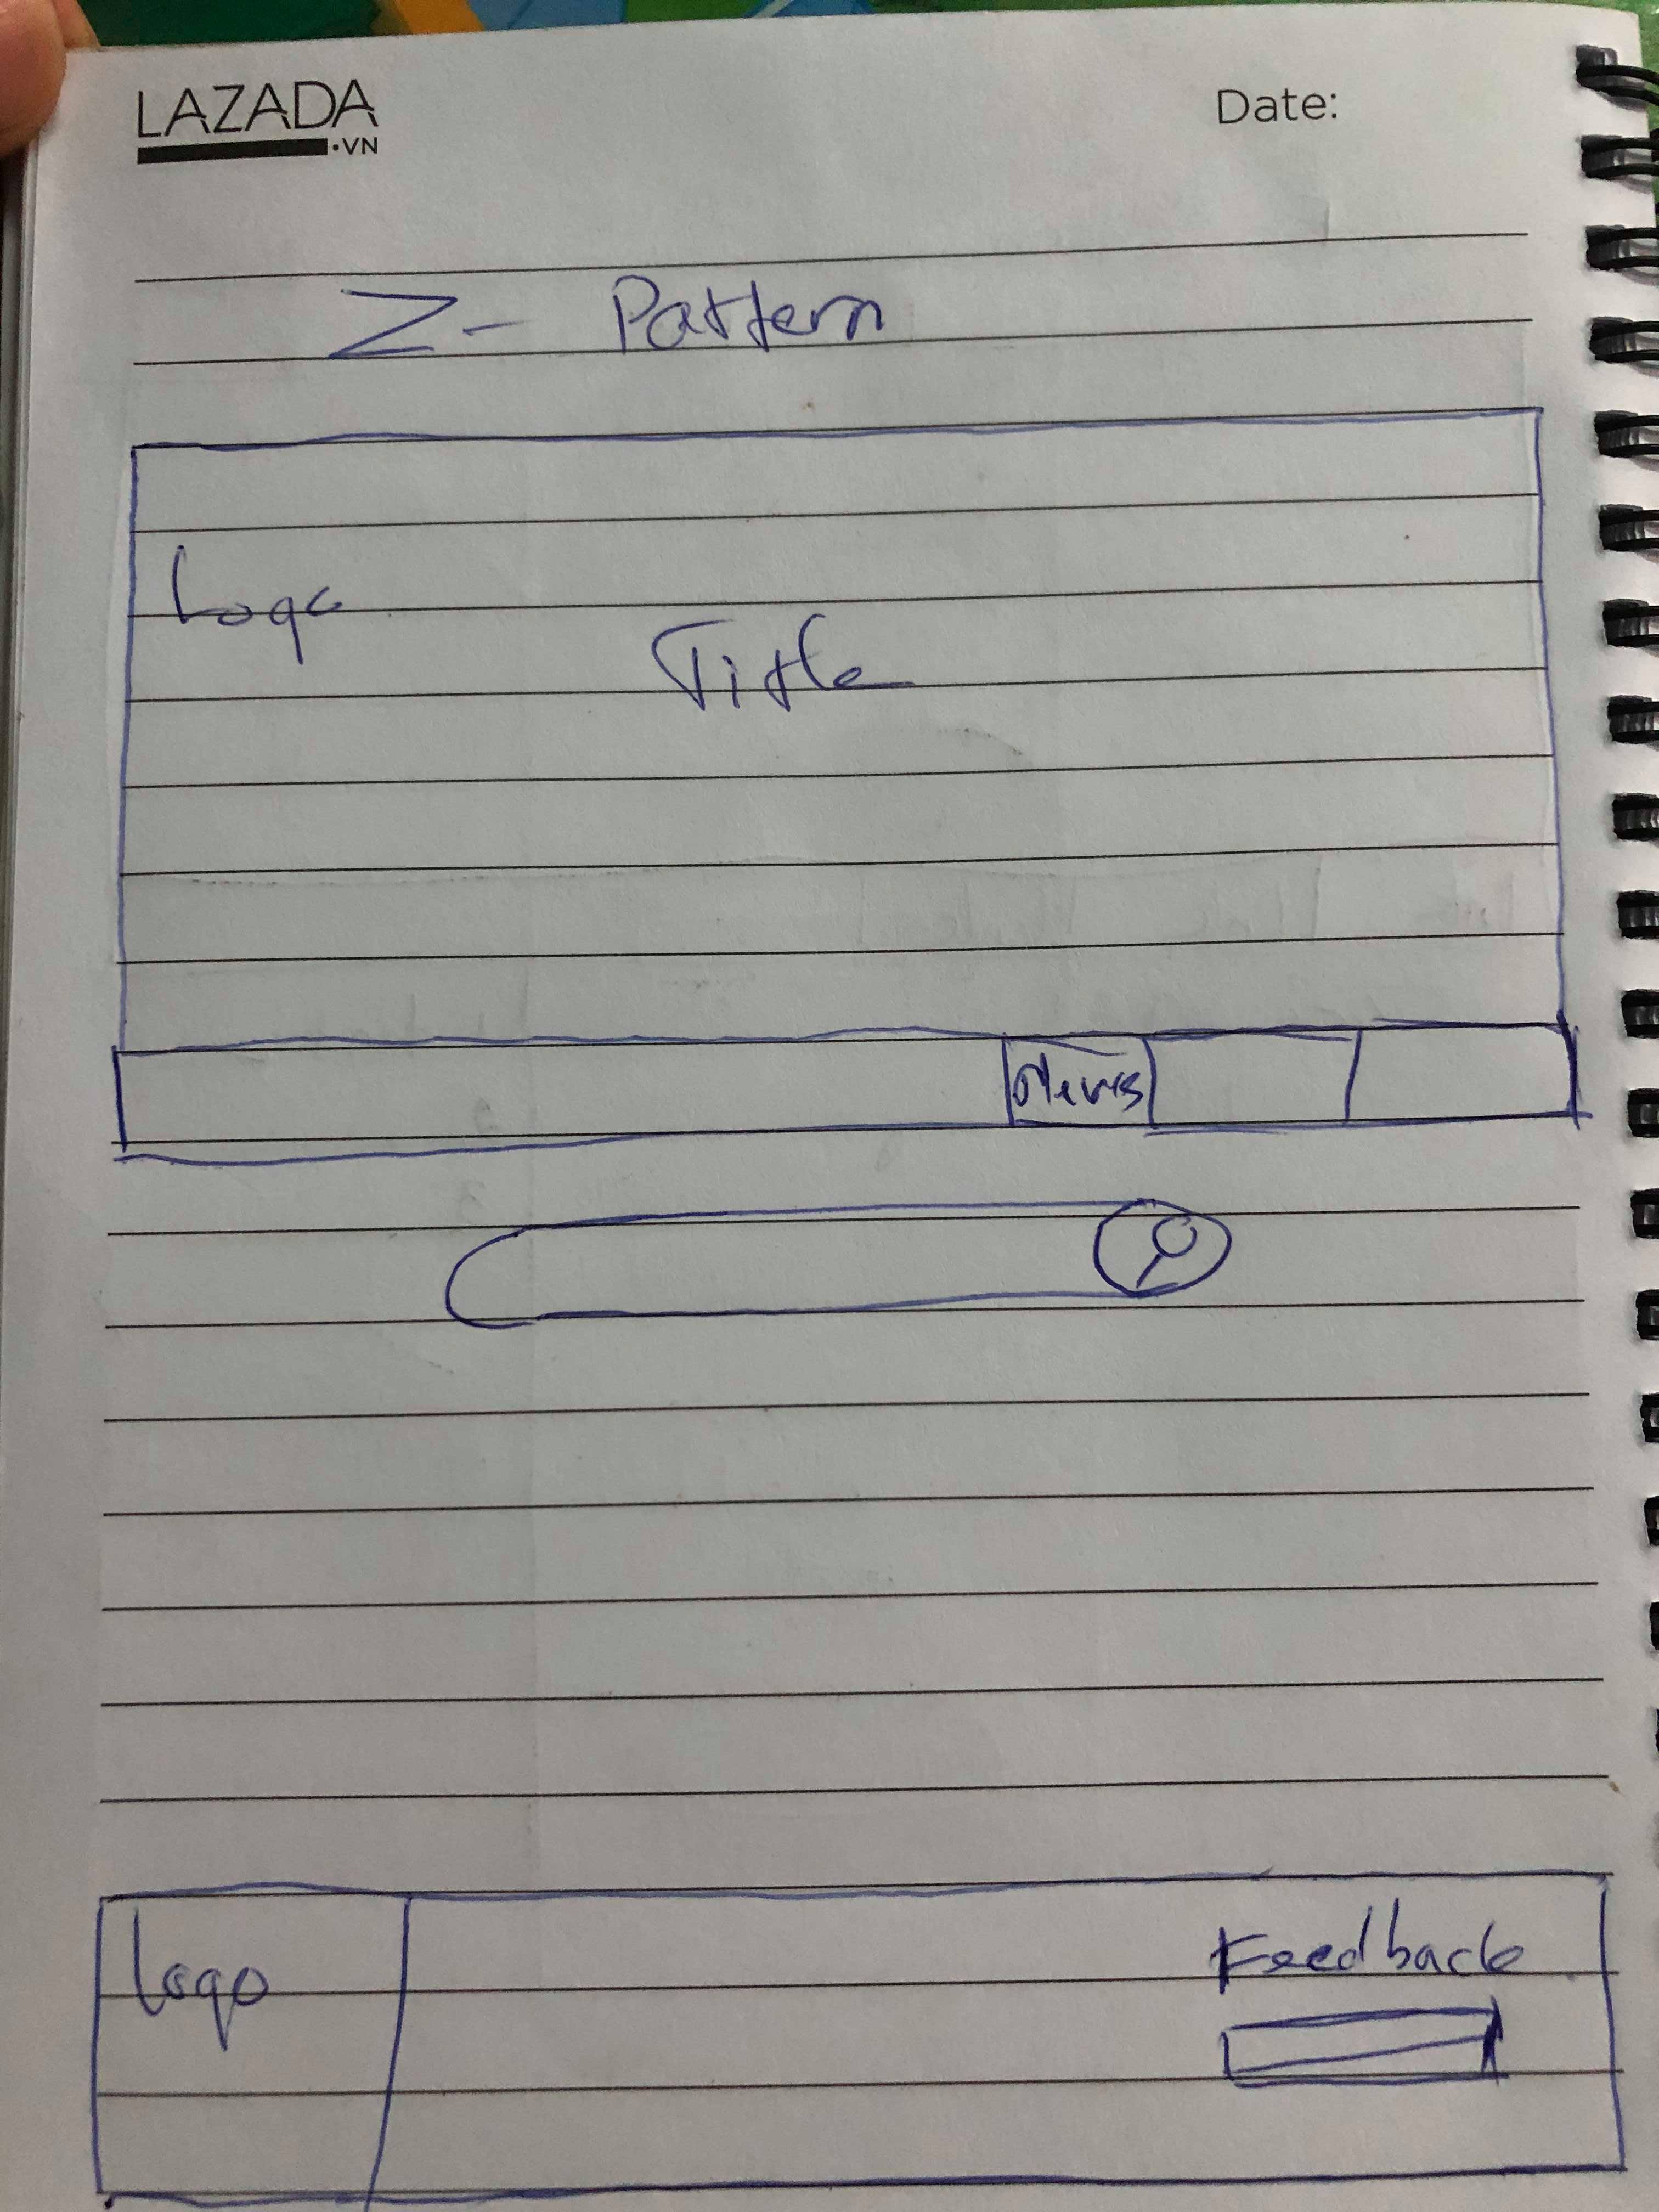 LAZADA
.VN
Date:
Z- Pattern
Logo
Title
News
Logo
Feedback